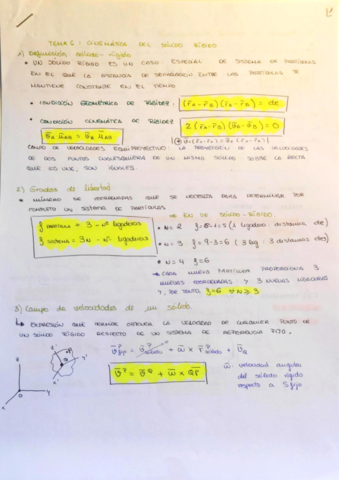 TEMA 6: CINEMÁTICA DEL SÓLIDO RÍGIDO
1) Definición sólido-rígido
• UN SÓLIDO RÍGIDO ES UN CASO ESPECIAL DE SISTEMA DE PARTÍCULAS
EN EL QUE LA DISTANCIA DE SEPARACIÓN ENTRE LAS PARTÍCULAS SE
MANTIENE CONSTANTE EN EL TIEMPO
• CONDICIÓN GEOMÉTRICA DE RIGIDEZ: (r̄A - r̄B)(r̄A - r̄B) = cte
• CONDICIÓN CINEMÁTICA DE RIGIDEZ: 2(r̄A - r̄B)(v̄A - v̄B) = 0
v̄A ūAB = v̄B ūAB
CAMPO DE VELOCIDADES EQUIPROYECTIVO: LA PROYECCIÓN DE LAS VELOCIDADES
DE DOS PUNTOS CUALESQUIERA DE UN MISMO SÓLIDO SOBRE LA RECTA
QUE LOS UNE, SON IGUALES.
2) Grados de libertad
• NÚMERO DE COORDENADAS QUE SE NECESITA PARA DETERMINAR POR
COMPLETO UN SISTEMA DE PARTÍCULAS
EN UN SÓLIDO-RÍGIDO
f partícula = 3 - nº ligaduras
f sistema = 3N - nº ligaduras
• N = 2 f = 6-1 = 5 (1 ligadura: distancia cte)
• N = 3 f = 9-3 = 6 (3 lig: 3 distancias ctes)
• N = 4 f = 6
↳ CADA NUEVA PARTÍCULA PROPORCIONA 3
NUEVAS COORDENADAS Y 3 NUEVAS LIGADURAS
Y, POR TANTO, f = 6 ∀ N ≥ 3
3) Campo de velocidades de un sólido
↳ EXPRESIÓN QUE PERMITE OBTENER LA VELOCIDAD DE CUALQUIER PUNTO DE
UN SÓLIDO RÍGIDO RESPECTO DE UN SISTEMA DE REFERENCIA FIJO.
v̄P = v̄Q + ω̄ × QP
ω̄: velocidad angular
del sólido rígido
respecto a S fijo